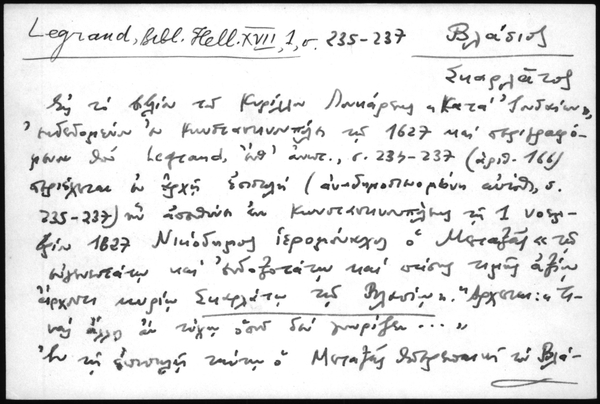 Legrand, Bibl. Hell. XVII, 1, σ. 235-237 Βλάσιος
Σκαρλᾶτος
Εἰς τὸ βιβλίον τοῦ Κυρίλλου Λουκάρεως «Κατὰ Ἰουδαίων»,
ἐκδεδομένον ἐν Κωνσταντινουπόλει τῷ 1627 καὶ περιγραφό-
μενον ὑπὸ Legrand, ἔνθ' ἀνωτ., σ. 234-237 (ἀριθ. 166)
περιέχεται ἐν ἀρχῇ ἐπιστολὴ (ἀναδημοσιευομένη αὐτόθι, σ.
235-237) ἣν ἀπευθύνει ἐκ Κωνσταντινουπόλεως τῇ 1 νοεμ-
βρίου 1627 Νικόδημος ἱερομόναχος ὁ Μεταξᾶς «τῷ
εὐγενεστάτῳ καὶ ἐνδοξοτάτῳ καὶ πάσης τιμῆς ἀξίῳ
ἄρχοντι κυρίῳ Σκαρλάτῳ τῷ Βλασίῳ». Ἄρχεται: «Τι-
νὰς ἄλλος ἂν τύχῃ ὁποῦ δὲν γνωρίζει ... »
Ἐν τῇ ἐπιστολῇ ταύτῃ ὁ Μεταξᾶς τὸν Βλά-